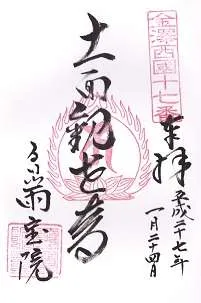 金澤西國十七番
奉拝
平成二十七年
一月二十四日
十一面観世音
雨宝院